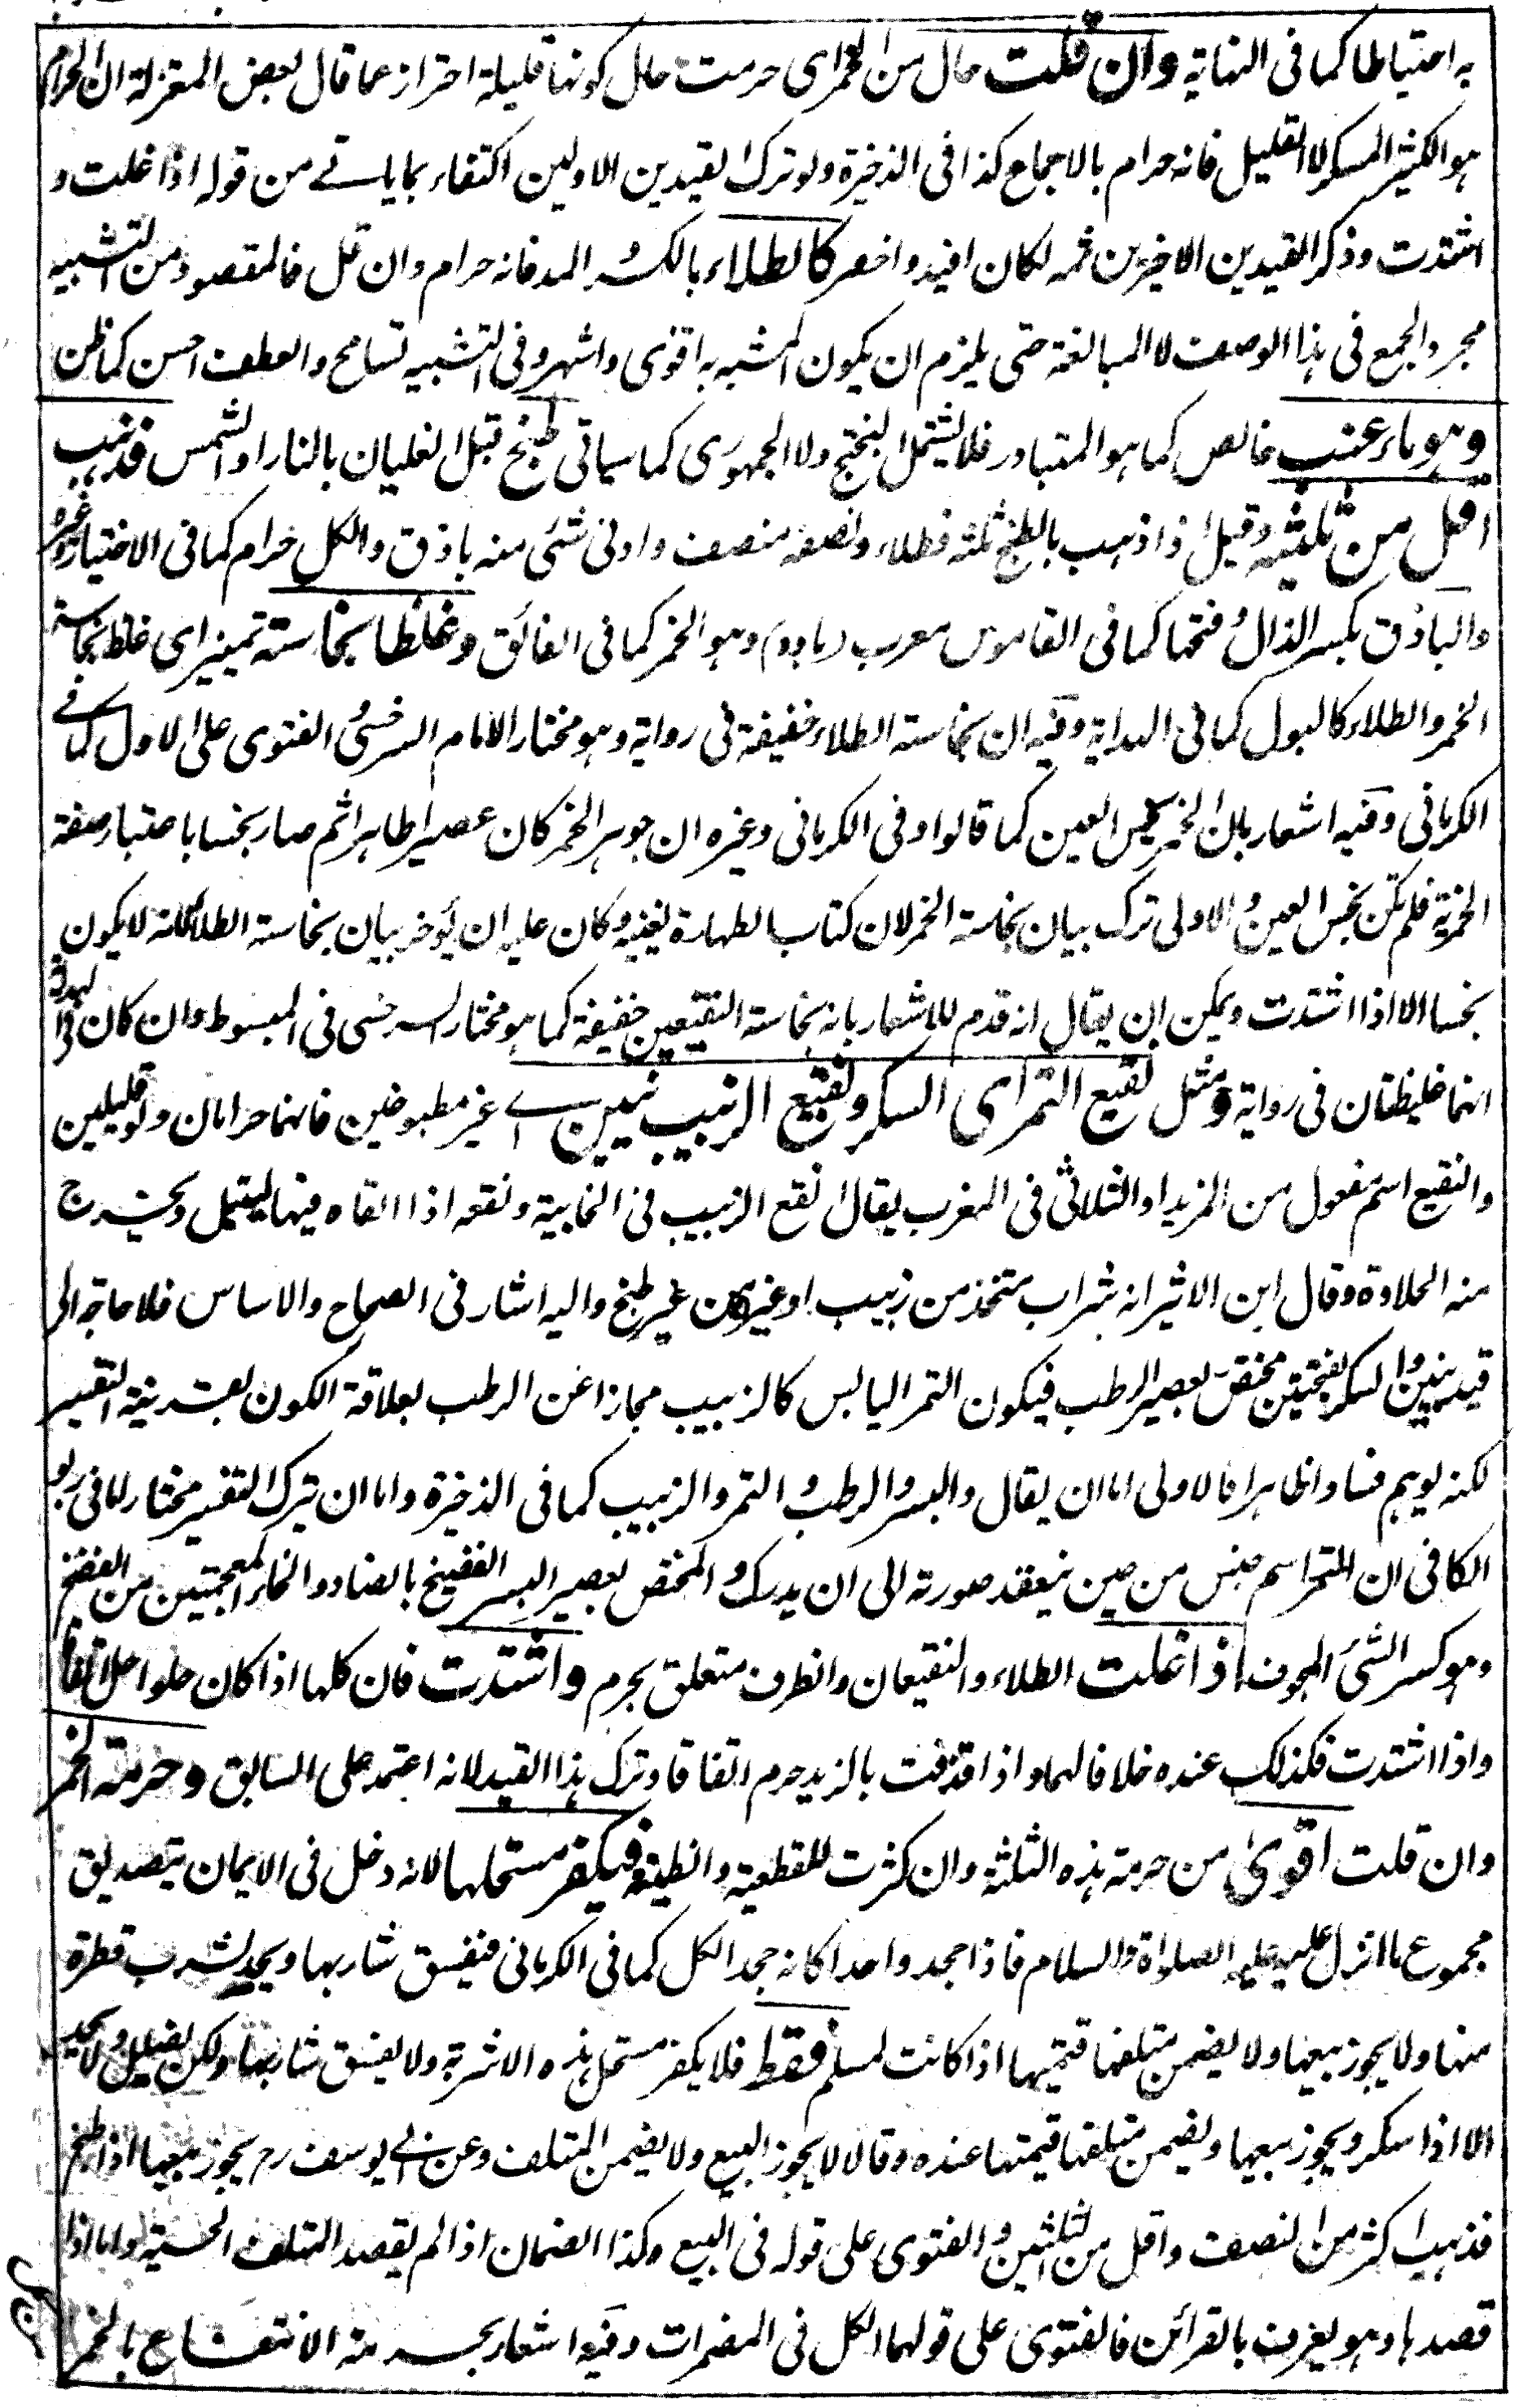 به احتياطا كما فى النهاية وان قلت حال من الخمر اى حرمت حال كونها قليلة احتراز عما قال بعض المعتزلة ان الحرام
هو الكثير المسكر لا القليل فانه حرام بالاجماع كذا فى الذخيرة ولو ترك القيدين الاولين اكتفاء بما ياتے من قوله اذا غلت و
اشتدت وذكر القيدين الاخيرين ثمه لكان افيد واخصر كالطلاء بالكسر والمد فانه حرام وان قل فالمقصود من التشبيه
مجرد الجمع فى هذا الوصف لا المبالغة حتى يلزم ان يكون المشبه به اقوى واشهر وفى التشبيه تسامح والعطف احسن كما ظن
وهو ماء عنب خالص كما هو المتبادر فلا يشتمل البختج ولا الجمهورى كما سياتى طبخ قبل الغليان بالنار او الشمس فذهب
اقل من ثلثيه وقيل اذا ذهب بالطبخ ثلثه فطلاء ونصفه منصف وادنى شئ منه باذق والكل حرام كما فى الاختيار وغيره
والباذق بكسر الذال وفتحها كما فى القاموس معرب (باده) وهو الخمر كما فى الفائق وغلظا نجاسة تميز اى غلظ نجاسة
الخمر والطلاء كالبول كما فى الهداية وفيه ان نجاسة الطلاء خفيفة فى رواية وهو مختار الامام السرخسى والفتوى على الاول كما فے
الكرمانى وفيه اشعار بان الخمر نجس العين كما قالوا وفى الكرمانى وغيره ان جوهر الخمر كان عصيرا طاهرا ثم صار نجسا باعتبار صفة
الخمرية فلم تكن نجس العين والاولى ترك بيان نجاسة الخمر لان كتاب الطهارة يغنيه وكان عليه ان يؤخر بيان نجاسة الطلاء لانه لا يكون
نجسا الا اذا اشتدت ويمكن ان يقال انه قدم للاشعار بانه نجاسة النقيعين خفيفة كما هو مختار السرخسى فى المبسوط وان كان فى الهداية
انهما غليظتان فى رواية ومثل نقيع التمر اى السكر ونقيع الزبيب نيين اے غير مطبوخين فانهما حرامان ولو قليلين
والنقيع اسم مفعول من المزيد او الثلاثى فى المغرب يقال انقع الزبيب فى الخابية ونقعه اذا القاه فيها ليبتل ويخرج
منه الحلاوة وقال ابن الاثير انه شراب متخذ من زبيب او غيره من غير طبخ واليه اشار فى الصحاح والاساس فلا حاجة الى
قيد نيين والسكر بفتحتين مختص بعصير الرطب فيكون التمر اليابس كالزبيب مجازا عن الرطب بعلاقة الكون بقرينة التفسير
لكنه يوهم فسادا ظاهرا فالاولى اما ان يقال والبسر والرطب والتمر والزبيب كما فى الذخيرة واما ان يترك التفسير مختارا لما فى ربو
الكافى ان التمر اسم جنس من حين ينعقد صورته الى ان يدرك والمختص بعصير البسر الفضيخ بالضاد والخاء المعجمتين من الفضخ
وهو كسر الشئ المجوف اذا غلت الطلاء والنقيعان والظرف متعلق بحرم واشتدت فان كلها اذا كان حلوا حل اتفاقا
واذا اشتدت فكذلك عنده خلافا لهما واذا قذفت بالزبد حرم اتفاقا وترك هذا القيد لانه اعتمد على السابق وحرمة الخمر
وان قلت اقوى من حرمة هذه الثلثة وان كثرت للقطعية والظنية فيكفر مستحلها لانه دخل فى الايمان بتصديق
مجموع ما انزل عليه عليه الصلوة والسلام فاذا جحد واحدا كانه جحد الكل كما فى الكرمانى فيفسق شاربها ويحد بشرب قطرة
منها ولا يجوز بيعها ولا يضمن متلفها قيمتها اذا كانت لمسلم فقط فلا يكفر مستحل هذه الاشربة ولا يفسق شاربها ولكن يضلل ولا يحد
الا اذا سكر ويجوز بيعها ويضمن متلفها قيمتها عنده وقالا لا يجوز البيع ولا يضمن المتلف وعن ابى يوسف رح يجوز بيعها اذا طبخ
فذهب اكثر من النصف واقل من الثلثين والفتوى على قوله فى البيع وكذا الضمان اذا لم يقصد المتلف الحسبة واما اذا
قصدها وهو يعرف بالقرائن فالفتوى على قولهما الكل فى المضمرات وفيه اشعار بحرمة الانتفاع بالخمر